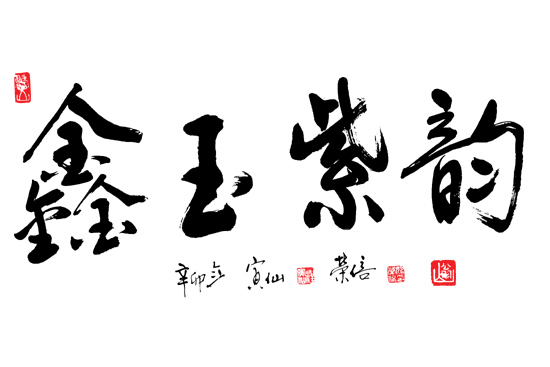 鑫玉紫韵
辛卯 寅仙 荣倍